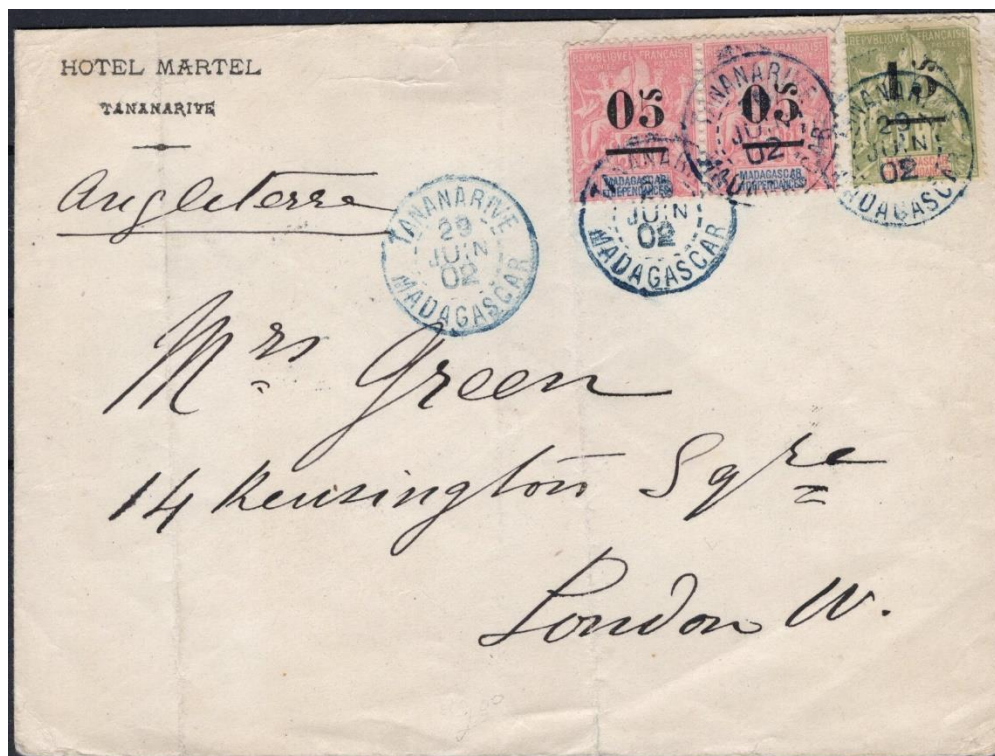 HOTEL MARTEL
TANANARIVE
Angleterre
REPUBLIQUE FRANÇAISE
05
MADAGASCAR
DÉPENDANCES
REPUBLIQUE FRANÇAISE
05
MADAGASCAR
DÉPENDANCES
REPUBLIQUE FRANÇAISE
TANANARIVE
29
JUIN
02
MADAGASCAR
TANANARIVE
JUIN
02
MADAGASCAR
TANANARIVE
JUIN
02
TANANARIVE
29
JUIN
02
MADAGASCAR
Mrs Green
14 Kensington Sqre
London W.